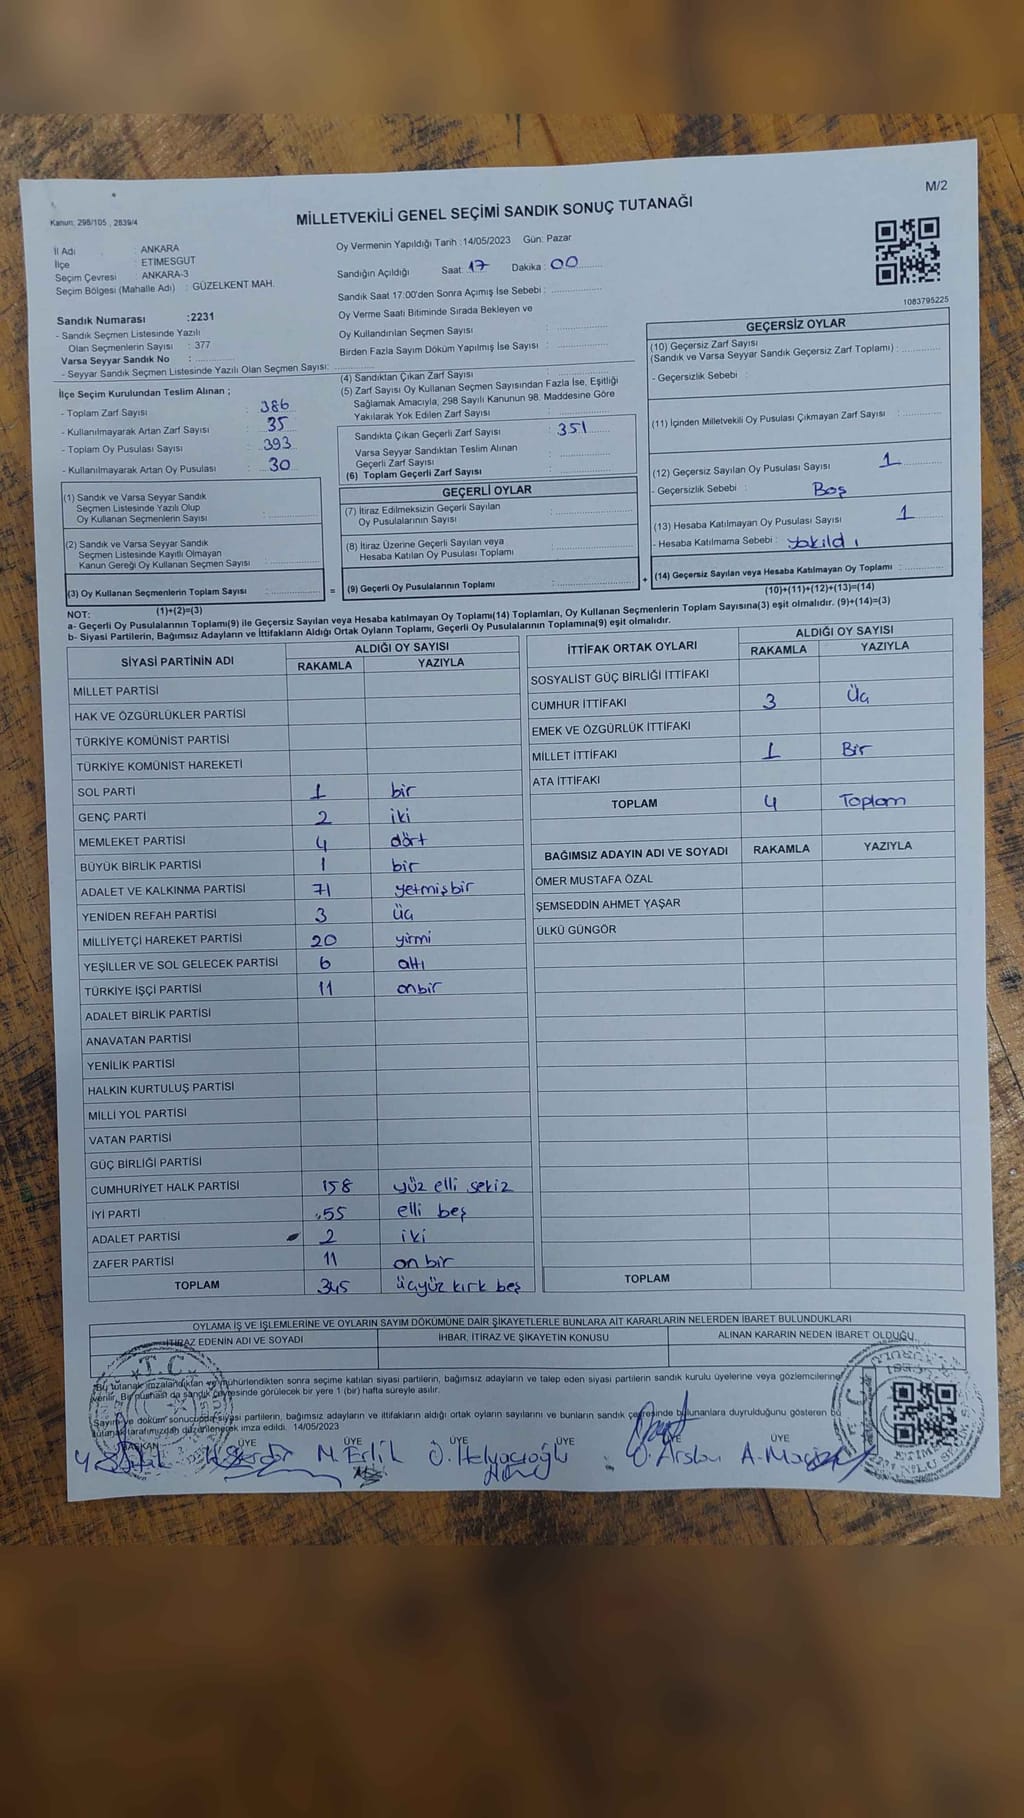 M/2
Kanun: 298/105 , 2839/4
MİLLETVEKİLİ GENEL SEÇİMİ SANDIK SONUÇ TUTANAĞI
İl Adı : ANKARA
İlçe : ETİMESGUT
Seçim Çevresi : ANKARA-3
Seçim Bölgesi (Mahalle Adı) : GÜZELKENT MAH.
Oy Vermenin Yapıldığı Tarih :14/05/2023 Gün: Pazar
Sandığın Açıldığı Saat: 17 Dakika : 00
Sandık Saat 17:00'den Sonra Açımış İse Sebebi :
Oy Verme Saati Bitiminde Sırada Bekleyen ve
Oy Kullandırılan Seçmen Sayısı :
Birden Fazla Sayım Döküm Yapılmış İse Sayısı :
1083795225
Sandık Numarası :2231
- Sandık Seçmen Listesinde Yazılı
Olan Seçmenlerin Sayısı : 377
Varsa Seyyar Sandık No :
- Seyyar Sandık Seçmen Listesinde Yazılı Olan Seçmen Sayısı:
İlçe Seçim Kurulundan Teslim Alınan ;
- Toplam Zarf Sayısı : 386
- Kullanılmayarak Artan Zarf Sayısı : 35
- Toplam Oy Pusulası Sayısı : 393
- Kullanılmayarak Artan Oy Pusulası : 30
(1) Sandık ve Varsa Seyyar Sandık
Seçmen Listesinde Yazılı Olup
Oy Kullanan Seçmenlerin Sayısı :
(2) Sandık ve Varsa Seyyar Sandık
Seçmen Listesinde Kayıtlı Olmayan
Kanun Gereği Oy Kullanan Seçmen Sayısı :
(3) Oy Kullanan Seçmenlerin Toplam Sayısı :
(1)+(2)=(3)
(4) Sandıktan Çıkan Zarf Sayısı :
(5) Zarf Sayısı Oy Kullanan Seçmen Sayısından Fazla İse, Eşitliği
Sağlamak Amacıyla, 298 Sayılı Kanunun 98. Maddesine Göre
Yakılarak Yok Edilen Zarf Sayısı :
Sandıkta Çıkan Geçerli Zarf Sayısı : 351
Varsa Seyyar Sandıktan Teslim Alınan
Geçerli Zarf Sayısı :
(6) Toplam Geçerli Zarf Sayısı :
GEÇERLİ OYLAR
(7) İtiraz Edilmeksizin Geçerli Sayılan
Oy Pusulalarının Sayısı :
(8) İtiraz Üzerine Geçerli Sayılan veya
Hesaba Katılan Oy Pusulası Toplamı :
= (9) Geçerli Oy Pusulalarının Toplamı : +
GEÇERSİZ OYLAR
(10) Geçersiz Zarf Sayısı
(Sandık ve Varsa Seyyar Sandık Geçersiz Zarf Toplamı) :
- Geçersizlik Sebebi :
(11) İçinden Milletvekili Oy Pusulası Çıkmayan Zarf Sayısı :
(12) Geçersiz Sayılan Oy Pusulası Sayısı : 1
- Geçersizlik Sebebi : Boş
(13) Hesaba Katılmayan Oy Pusulası Sayısı : 1
- Hesaba Katılmama Sebebi : yakıldı
(14) Geçersiz Sayılan veya Hesaba Katılmayan Oy Toplamı :
(10)+(11)+(12)+(13)=(14)
NOT:
a- Geçerli Oy Pusulalarının Toplamı(9) ile Geçersiz Sayılan veya Hesaba katılmayan Oy Toplamı(14) Toplamları, Oy Kullanan Seçmenlerin Toplam Sayısına(3) eşit olmalıdır. (9)+(14)=(3)
b- Siyasi Partilerin, Bağımsız Adayların ve İttifakların Aldığı Ortak Oyların Toplamı, Geçerli Oy Pusulalarının Toplamına(9) eşit olmalıdır.
SİYASİ PARTİNİN ADI ALDIĞI OY SAYISI
RAKAMLA YAZIYLA
MİLLET PARTİSİ
HAK VE ÖZGÜRLÜKLER PARTİSİ
TÜRKİYE KOMÜNİST PARTİSİ
TÜRKİYE KOMÜNİST HAREKETİ
SOL PARTİ 1 bir
GENÇ PARTİ 2 iki
MEMLEKET PARTİSİ 4 dört
BÜYÜK BİRLİK PARTİSİ 1 bir
ADALET VE KALKINMA PARTİSİ 71 yetmişbir
YENİDEN REFAH PARTİSİ 3 üç
MİLLİYETÇİ HAREKET PARTİSİ 20 yirmi
YEŞİLLER VE SOL GELECEK PARTİSİ 6 altı
TÜRKİYE İŞÇİ PARTİSİ 11 onbir
ADALET BİRLİK PARTİSİ
ANAVATAN PARTİSİ
YENİLİK PARTİSİ
HALKIN KURTULUŞ PARTİSİ
MİLLİ YOL PARTİSİ
VATAN PARTİSİ
GÜÇ BİRLİĞİ PARTİSİ
CUMHURİYET HALK PARTİSİ 158 yüz elli sekiz
İYİ PARTİ 55 elli beş
ADALET PARTİSİ 2 iki
ZAFER PARTİSİ 11 on bir
TOPLAM 345 üçyüz kırk beş
İTTİFAK ORTAK OYLARI ALDIĞI OY SAYISI
RAKAMLA YAZIYLA
SOSYALİST GÜÇ BİRLİĞİ İTTİFAKI
CUMHUR İTTİFAKI 3 Üç
EMEK VE ÖZGÜRLÜK İTTİFAKI
MİLLET İTTİFAKI 1 Bir
ATA İTTİFAKI
TOPLAM 4 Toplam
BAĞIMSIZ ADAYIN ADI VE SOYADI RAKAMLA YAZIYLA
ÖMER MUSTAFA ÖZAL
ŞEMSEDDİN AHMET YAŞAR
ÜLKÜ GÜNGÖR
TOPLAM
OYLAMA İŞ VE İŞLEMLERİNE VE OYLARIN SAYIM DÖKÜMÜNE DAİR ŞİKAYETLERLE BUNLARA AİT KARARLARIN NELERDEN İBARET BULUNDUKLARI
İTİRAZ EDENİN ADI VE SOYADI İHBAR, İTİRAZ VE ŞİKAYETİN KONUSU ALINAN KARARIN NEDEN İBARET OLDUĞU
Bu tutanak imzalandıktan ve mühürlendikten sonra seçime katılan siyasi partilerin, bağımsız adayların ve talep eden siyasi partilerin sandık kurulu üyelerine veya gözlemcilerine
verilir. Bir nüshası da sandık çevresinde görülecek bir yere 1 (bir) hafta süreyle asılır.
Sayım ve döküm sonucunda siyasi partilerin, bağımsız adayların ve ittifakların aldığı ortak oyların sayılarını ve bunların sandık çevresinde bulunanlara duyrulduğunu gösteren bu
tutanak tarafımızdan düzenlenerek imza edildi. 14/05/2023
BAŞKAN ÜYE ÜYE ÜYE ÜYE ÜYE ÜYE
M. Erlik Ö. Arslan
T.C.